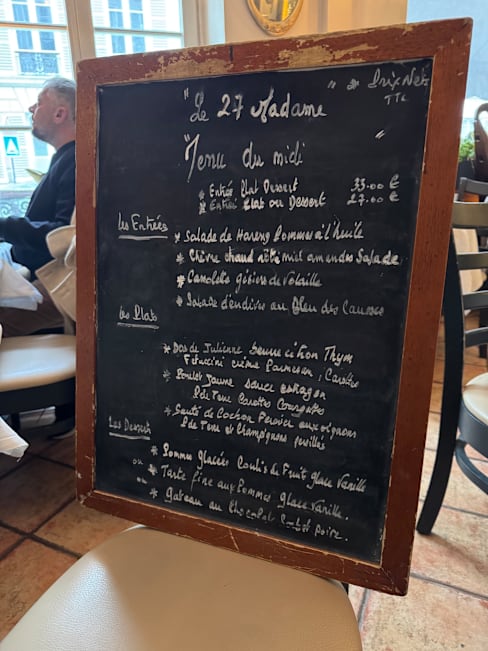 "Le 27 Madame"
Prix Nets
TTC
"Menu du midi"
* Entrée Plat Dessert 33.00 €
* Entrée Plat ou Dessert 27.00 €
Les Entrées
* Salade de Harengs Pommes à l'huile
* Chèvre chaud rôti miel amandes Salade
* Cassolette gésiers de Volaille
* Salade d'endives au Bleu des Causses
Les Plats
* Dos de Julienne beurre citron Thym
Fetuccini crème Parmesan
* Poulet Jaune sauce estragon
P de Terre Carottes Courgettes
* Sauté de Cochon aux oignons
P de Terre et Champignons
Les Dessert
* Pomme Glacées Coulis de Fruit glace Vanille
ou * Tarte fine aux Pommes Glace Vanille.
ou * Gateau au Chocolat poire.